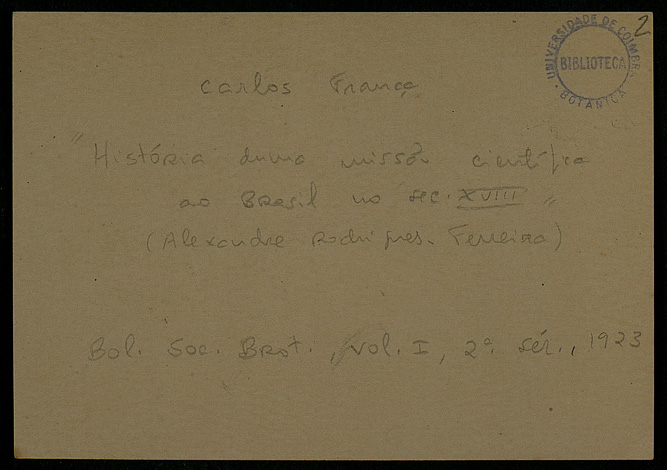 2
UNIVERSIDADE DE COIMBRA
BIBLIOTECA
BOTANICA
Carlos França
"História duma missão científica
ao Brasil no sec. XVIII"
(Alexandre Rodrigues Ferreira)
Bol. Soc. Brot., vol. I, 2ª. sér., 1923